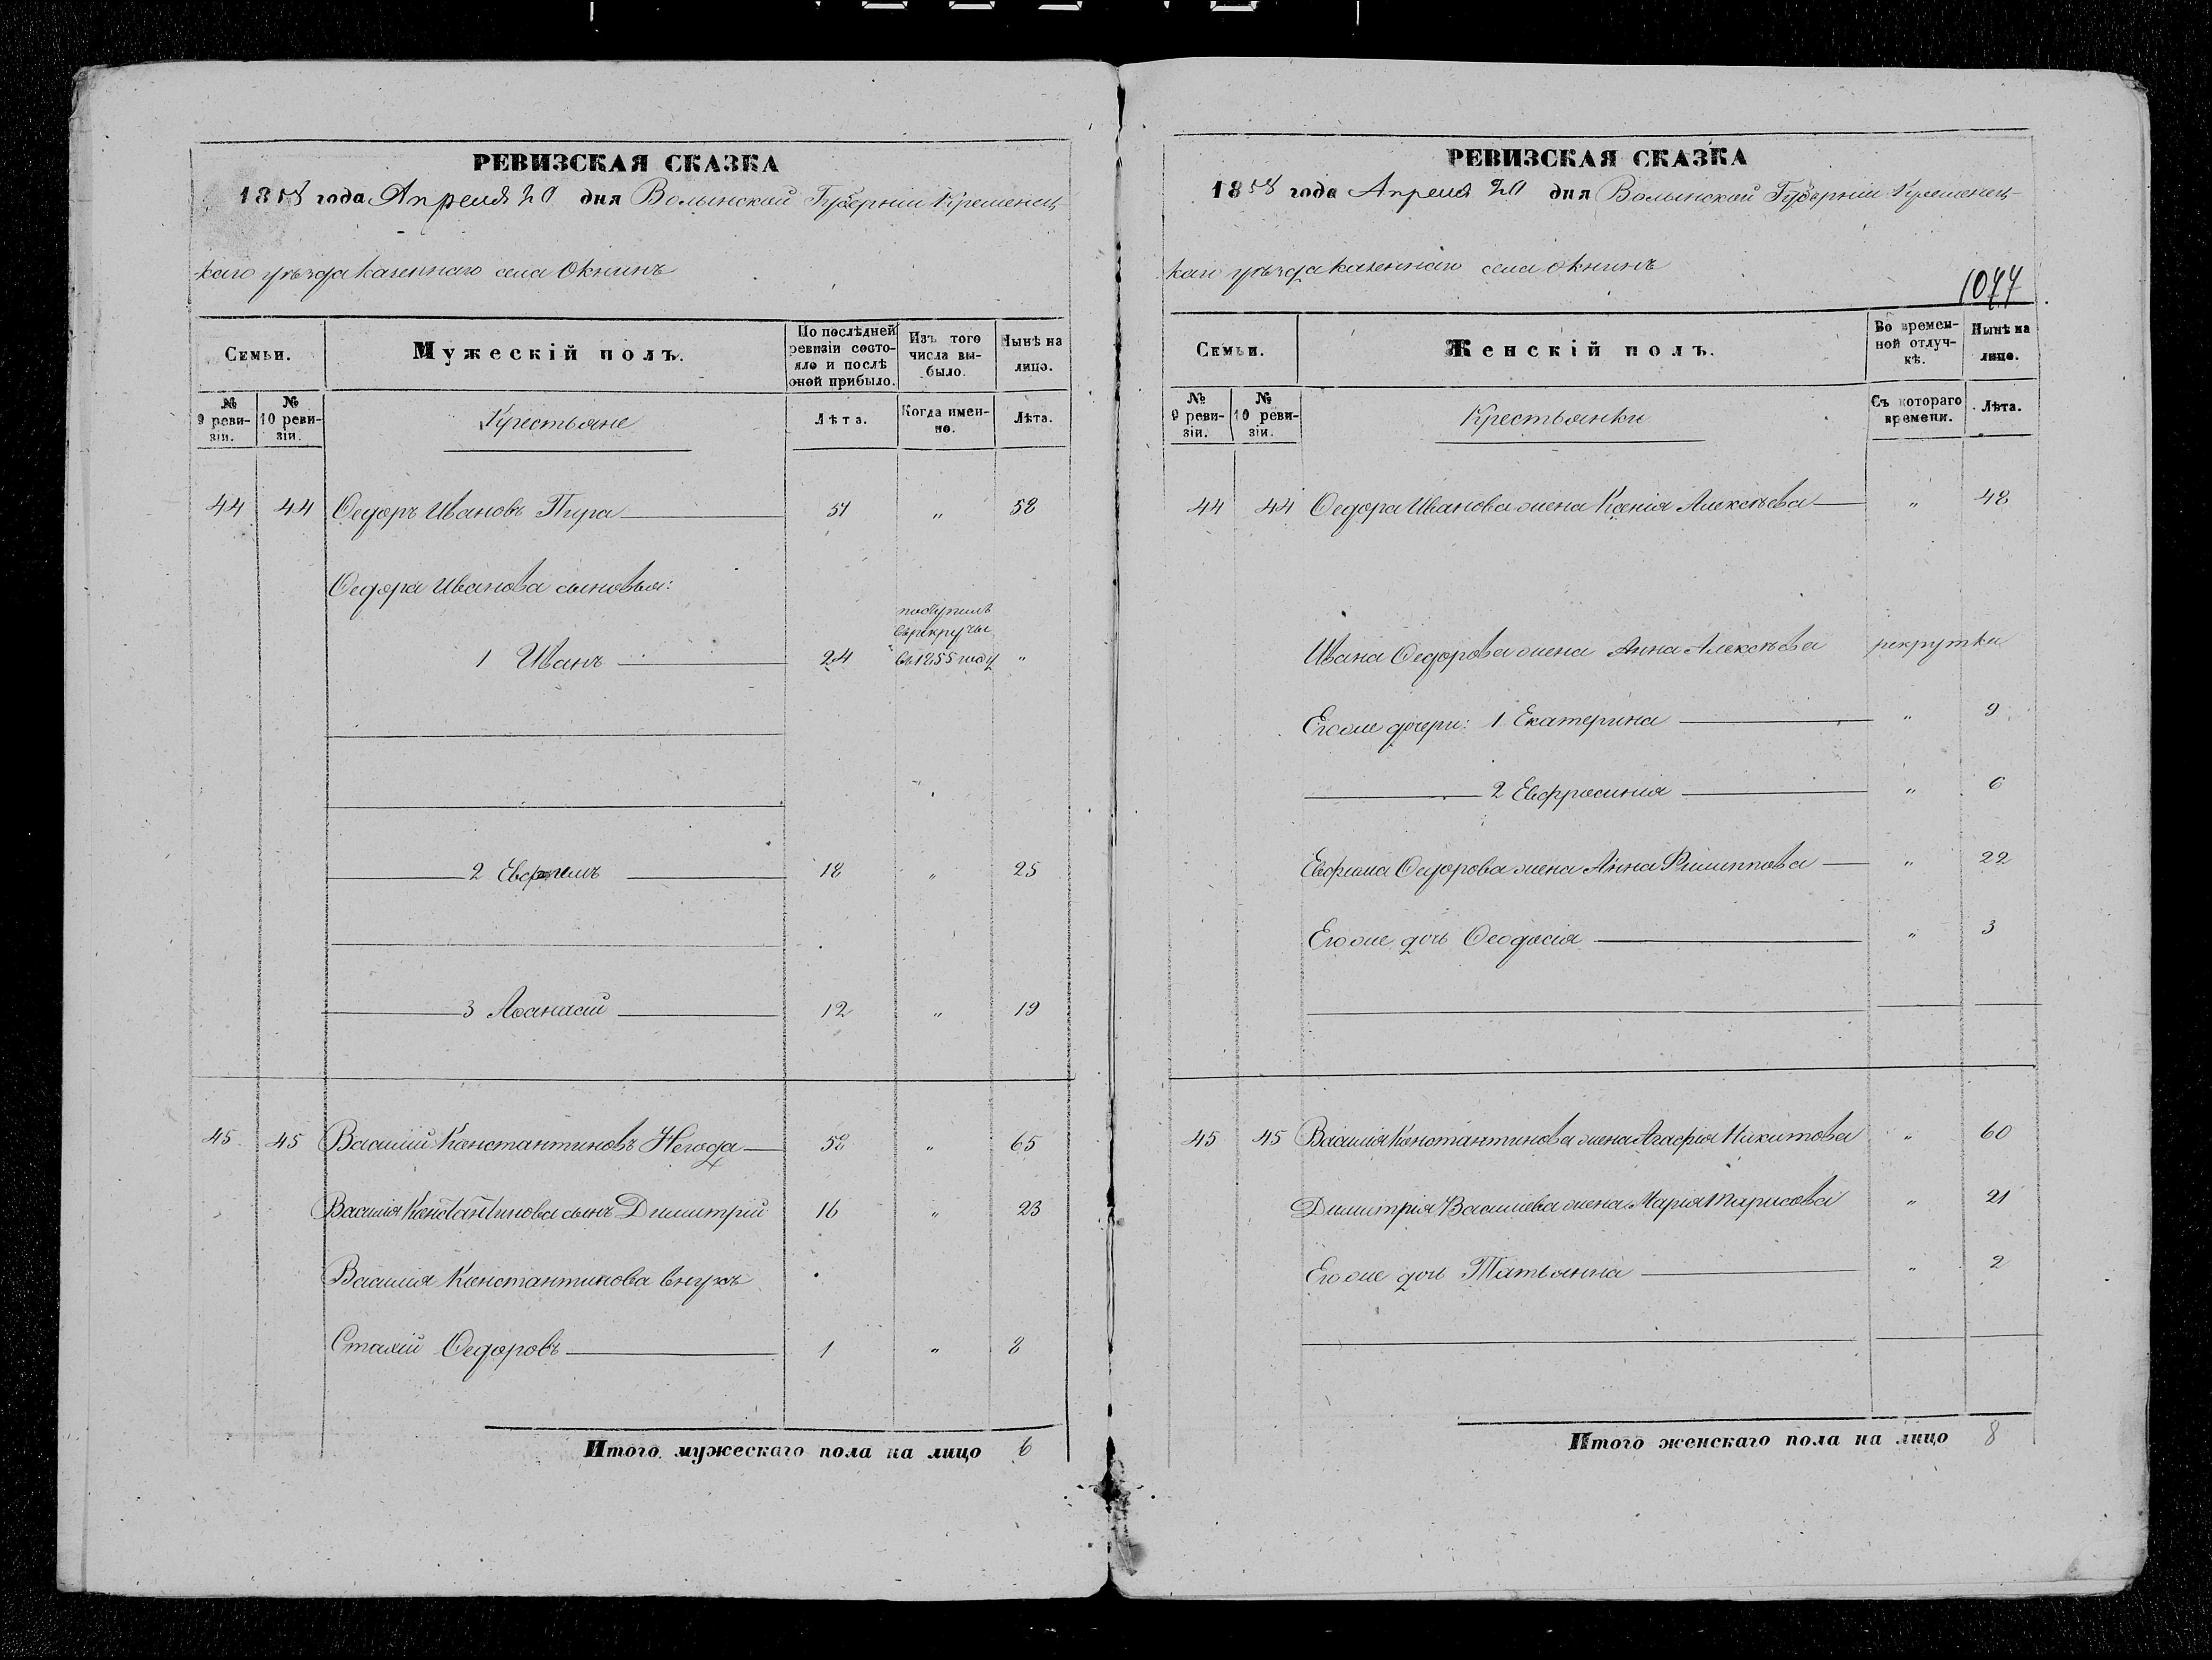 РЕВИЗСКАЯ СКАЗКА
1858 года Апреля 20 дня Волынской Губерніи Кременец-
каго уѣзда казеннаго села Окнинъ
Семьи.
Мужескій полъ.
По послѣдней ревизіи состо-яло и послѣ оной прибыло.
Изъ того числа вы-было.
Нынѣ на лицо.
№ 9 реви-зіи.
№ 10 реви-зіи.
Крестьяне
Лѣта.
Когда имен-но.
Лѣта.
44 44 Ѳедоръ Ивановъ Пура 51 " 58
Ѳедора Иванова сыновья:
поступилъ
въ рекруты
1 Иванъ 24 въ 1855 году "
2 Евфимъ 18 " 25
3 Аѳанасій 12 " 19
45 45 Василій Константиновъ Негода 58 " 65
Василія Константинова сынъ Димитрій 16 " 23
Василія Константинова внукъ
Стахій Ѳедоровъ 1 " 8
Итого мужескаго пола на лицо 6
РЕВИЗСКАЯ СКАЗКА
1858 года Апреля 20 дня Волынской Губерніи Кременец-
каго уѣзда казеннаго села Окнинъ
1077
Семьи.
Женскій полъ.
Во времен-ной отлуч-кѣ.
Нынѣ на лицо.
№ 9 реви-зіи.
№ 10 реви-зіи.
Крестьянки
Съ котораго времени.
Лѣта.
44 44 Ѳедора Иванова жена Ксенія Алексѣева " 48
Ивана Ѳедорова жена Анна Алексѣева рекрутка
Его же дочери: 1 Екатерина " 9
2 Евфросинія " 6
Евфима Ѳедорова жена Анна Филиппова " 22
Его же дочь Ѳеодосія " 3
45 45 Василія Константинова жена Агафія Никитова " 60
Димитрія Васильева жена Марія " 21
Его же дочь Татьянна " 2
Итого женскаго пола на лицо 8